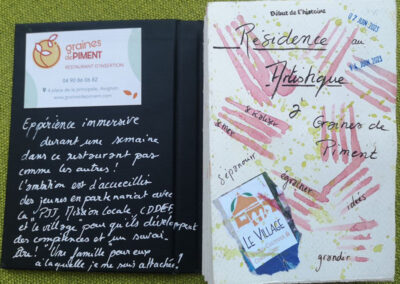 graines
de PIMENT
RESTAURANT D'INSERTION
04 90 86 06 82
4 place de la principale, Avignon
www.grainesdepiment.com
Expérience immersive
durant une semaine
dans ce restaurant pas
comme les autres !
L'ambition est d'accueillir
des jeunes en partenariat avec
la "PJJ, Mission locale, CDDEF
et le village" pour qu'ils développent
des compétences et "un savoir
être" ! Une famille pour eux
à laquelle je me suis attachée !
Début de l'histoire
02 JUIN 2023
Résidence au
JUIN 2023
Artistique
à
socialiser
semer
Graines de
Piment
s'épanouir
égrainer
idées
LE VILLAGE
grandir